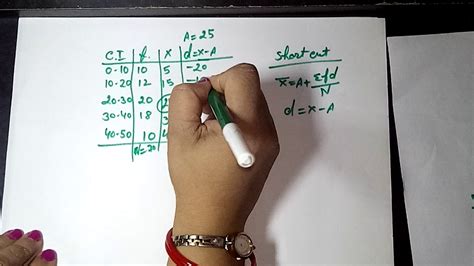 A = 25
C.I f. x d=x-A
0-10 10 5 -20
10-20 12 15
20-30 20
30-40 18
40-50 10
short cut
x̄ = A + Σfd/N
d = x - A